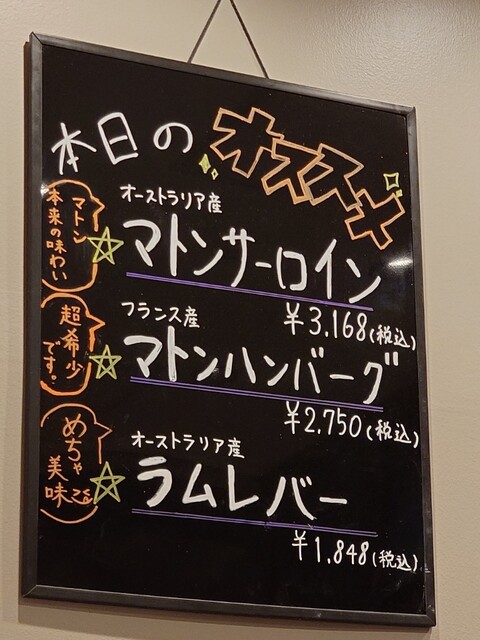 本日のオススメ
マトン
本来の味わい
オーストラリア産
マトンサーロイン
¥3,168(税込)
超希少
です。
フランス産
マトンハンバーグ
¥2,750(税込)
めちゃ
美味
オーストラリア産
ラムレバー
¥1,848(税込)